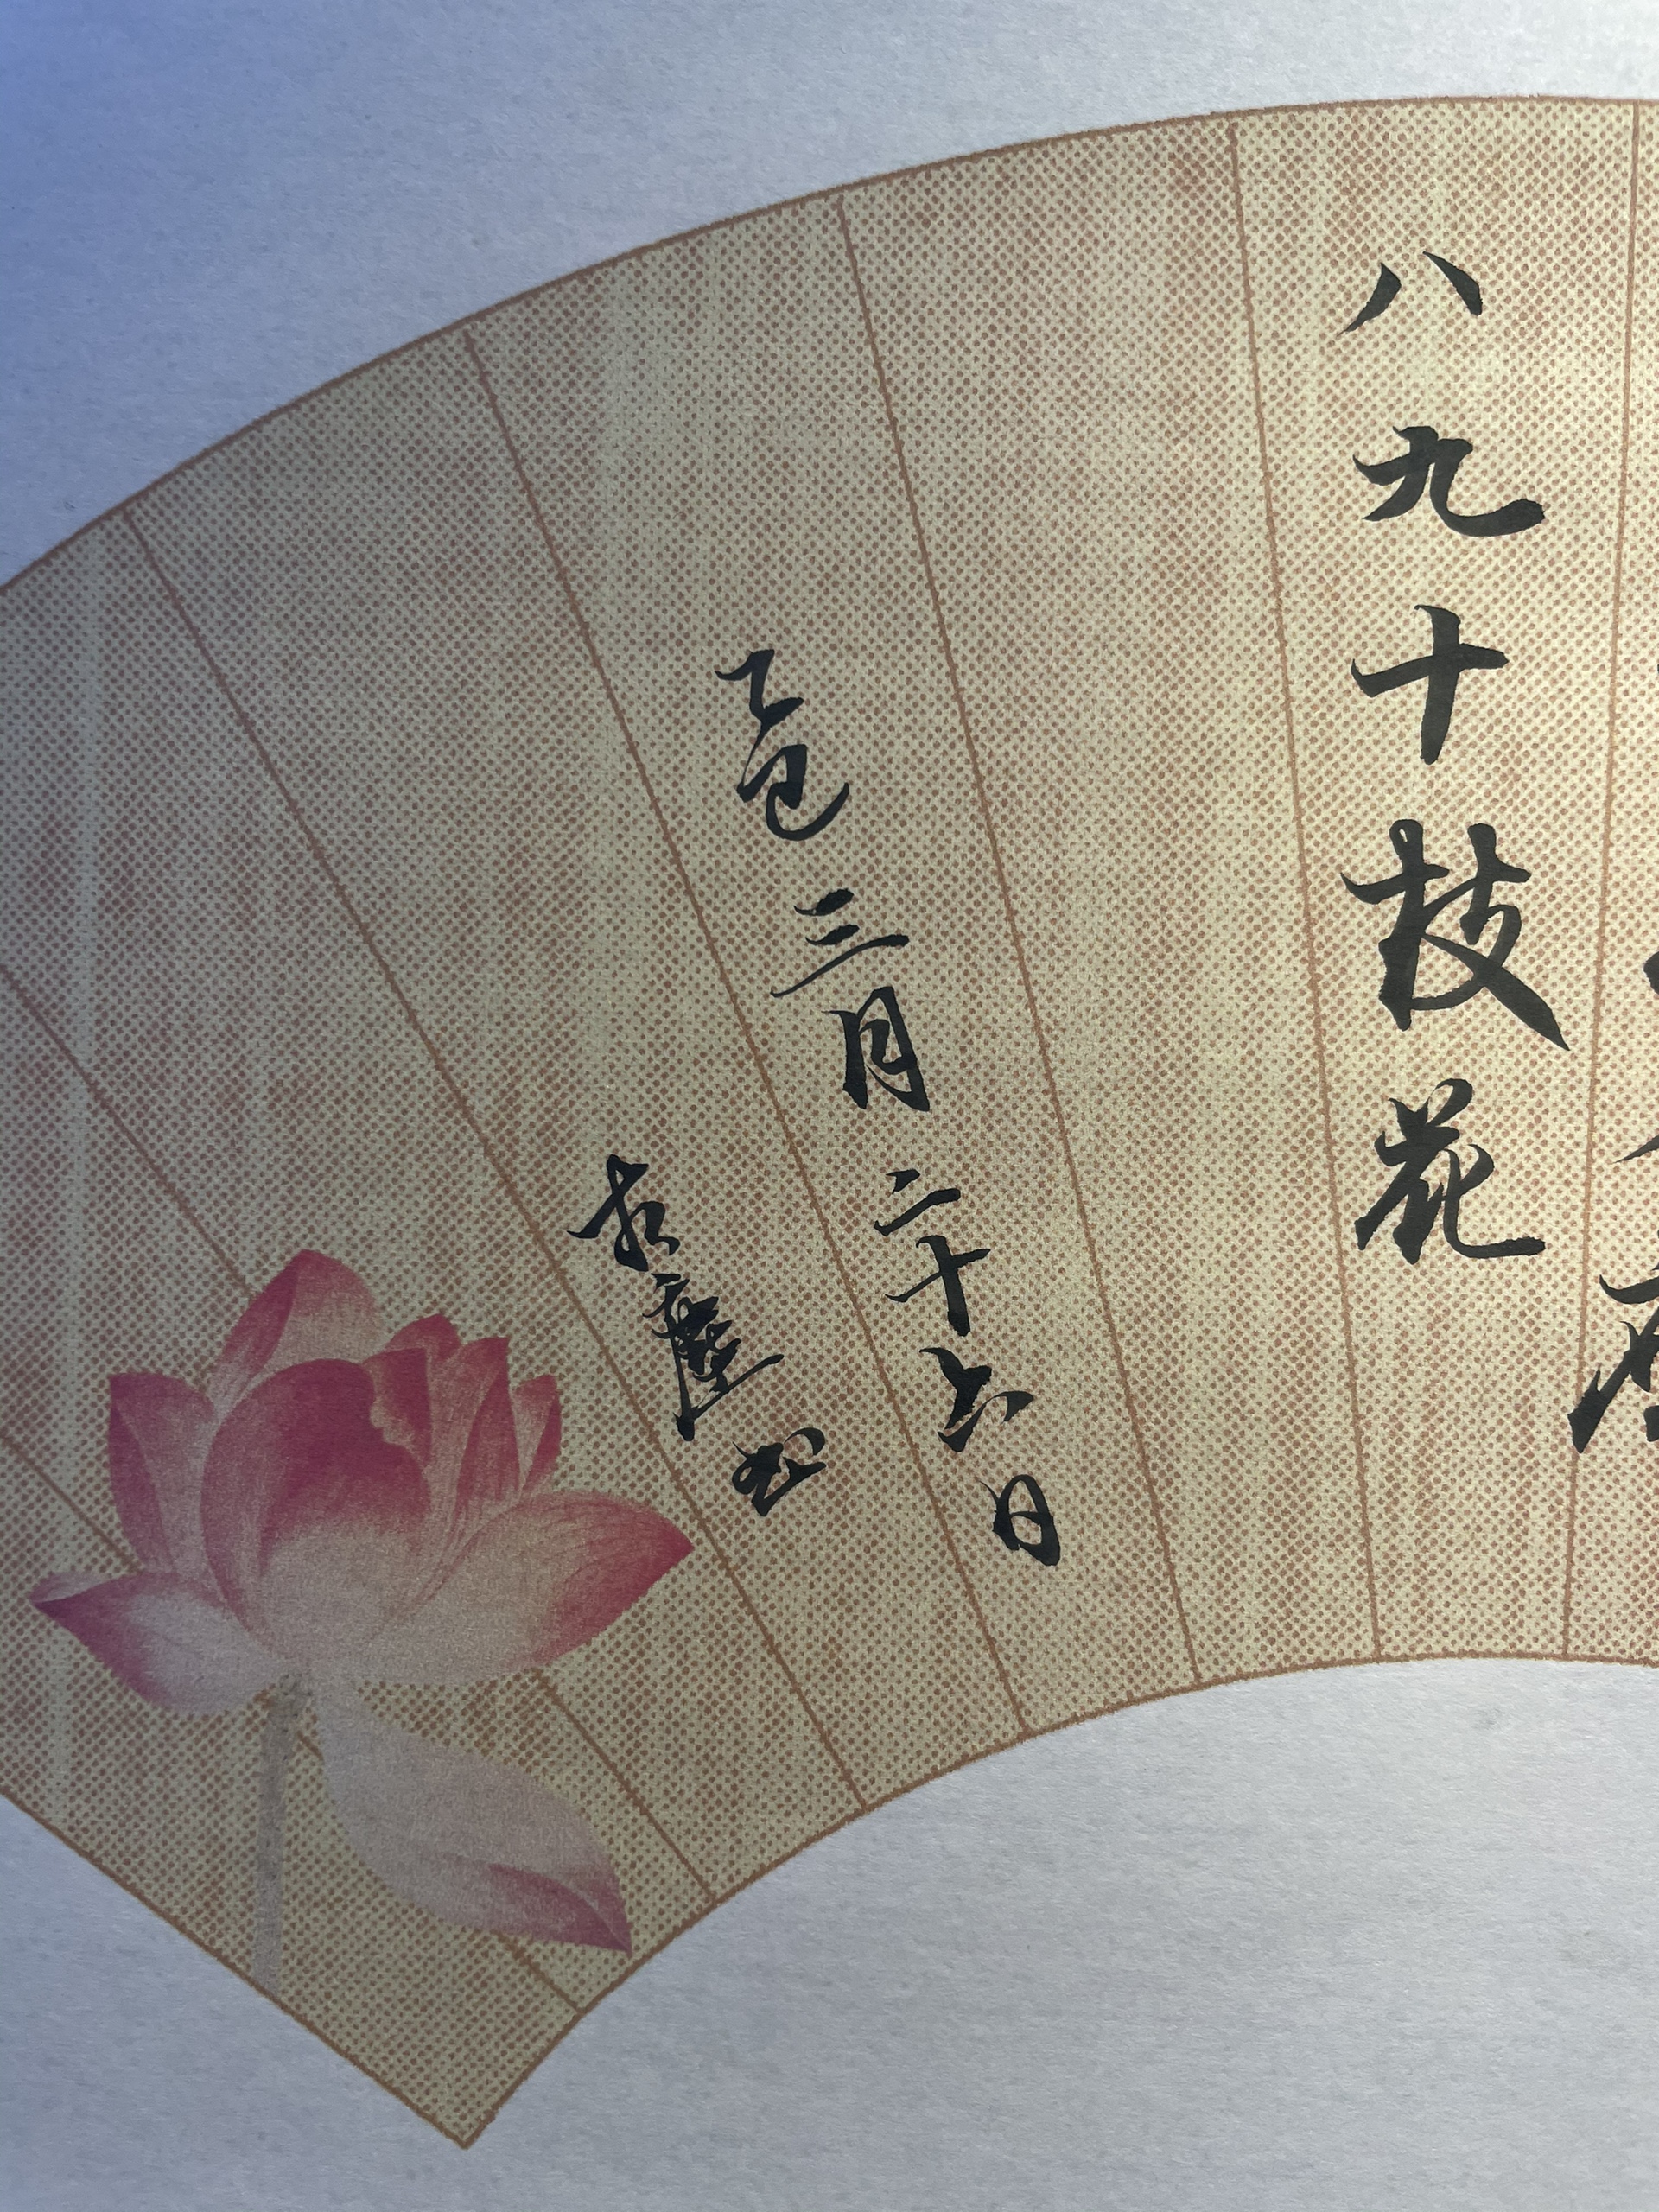 八九十枝花
乙巳三月二十六日
塵书